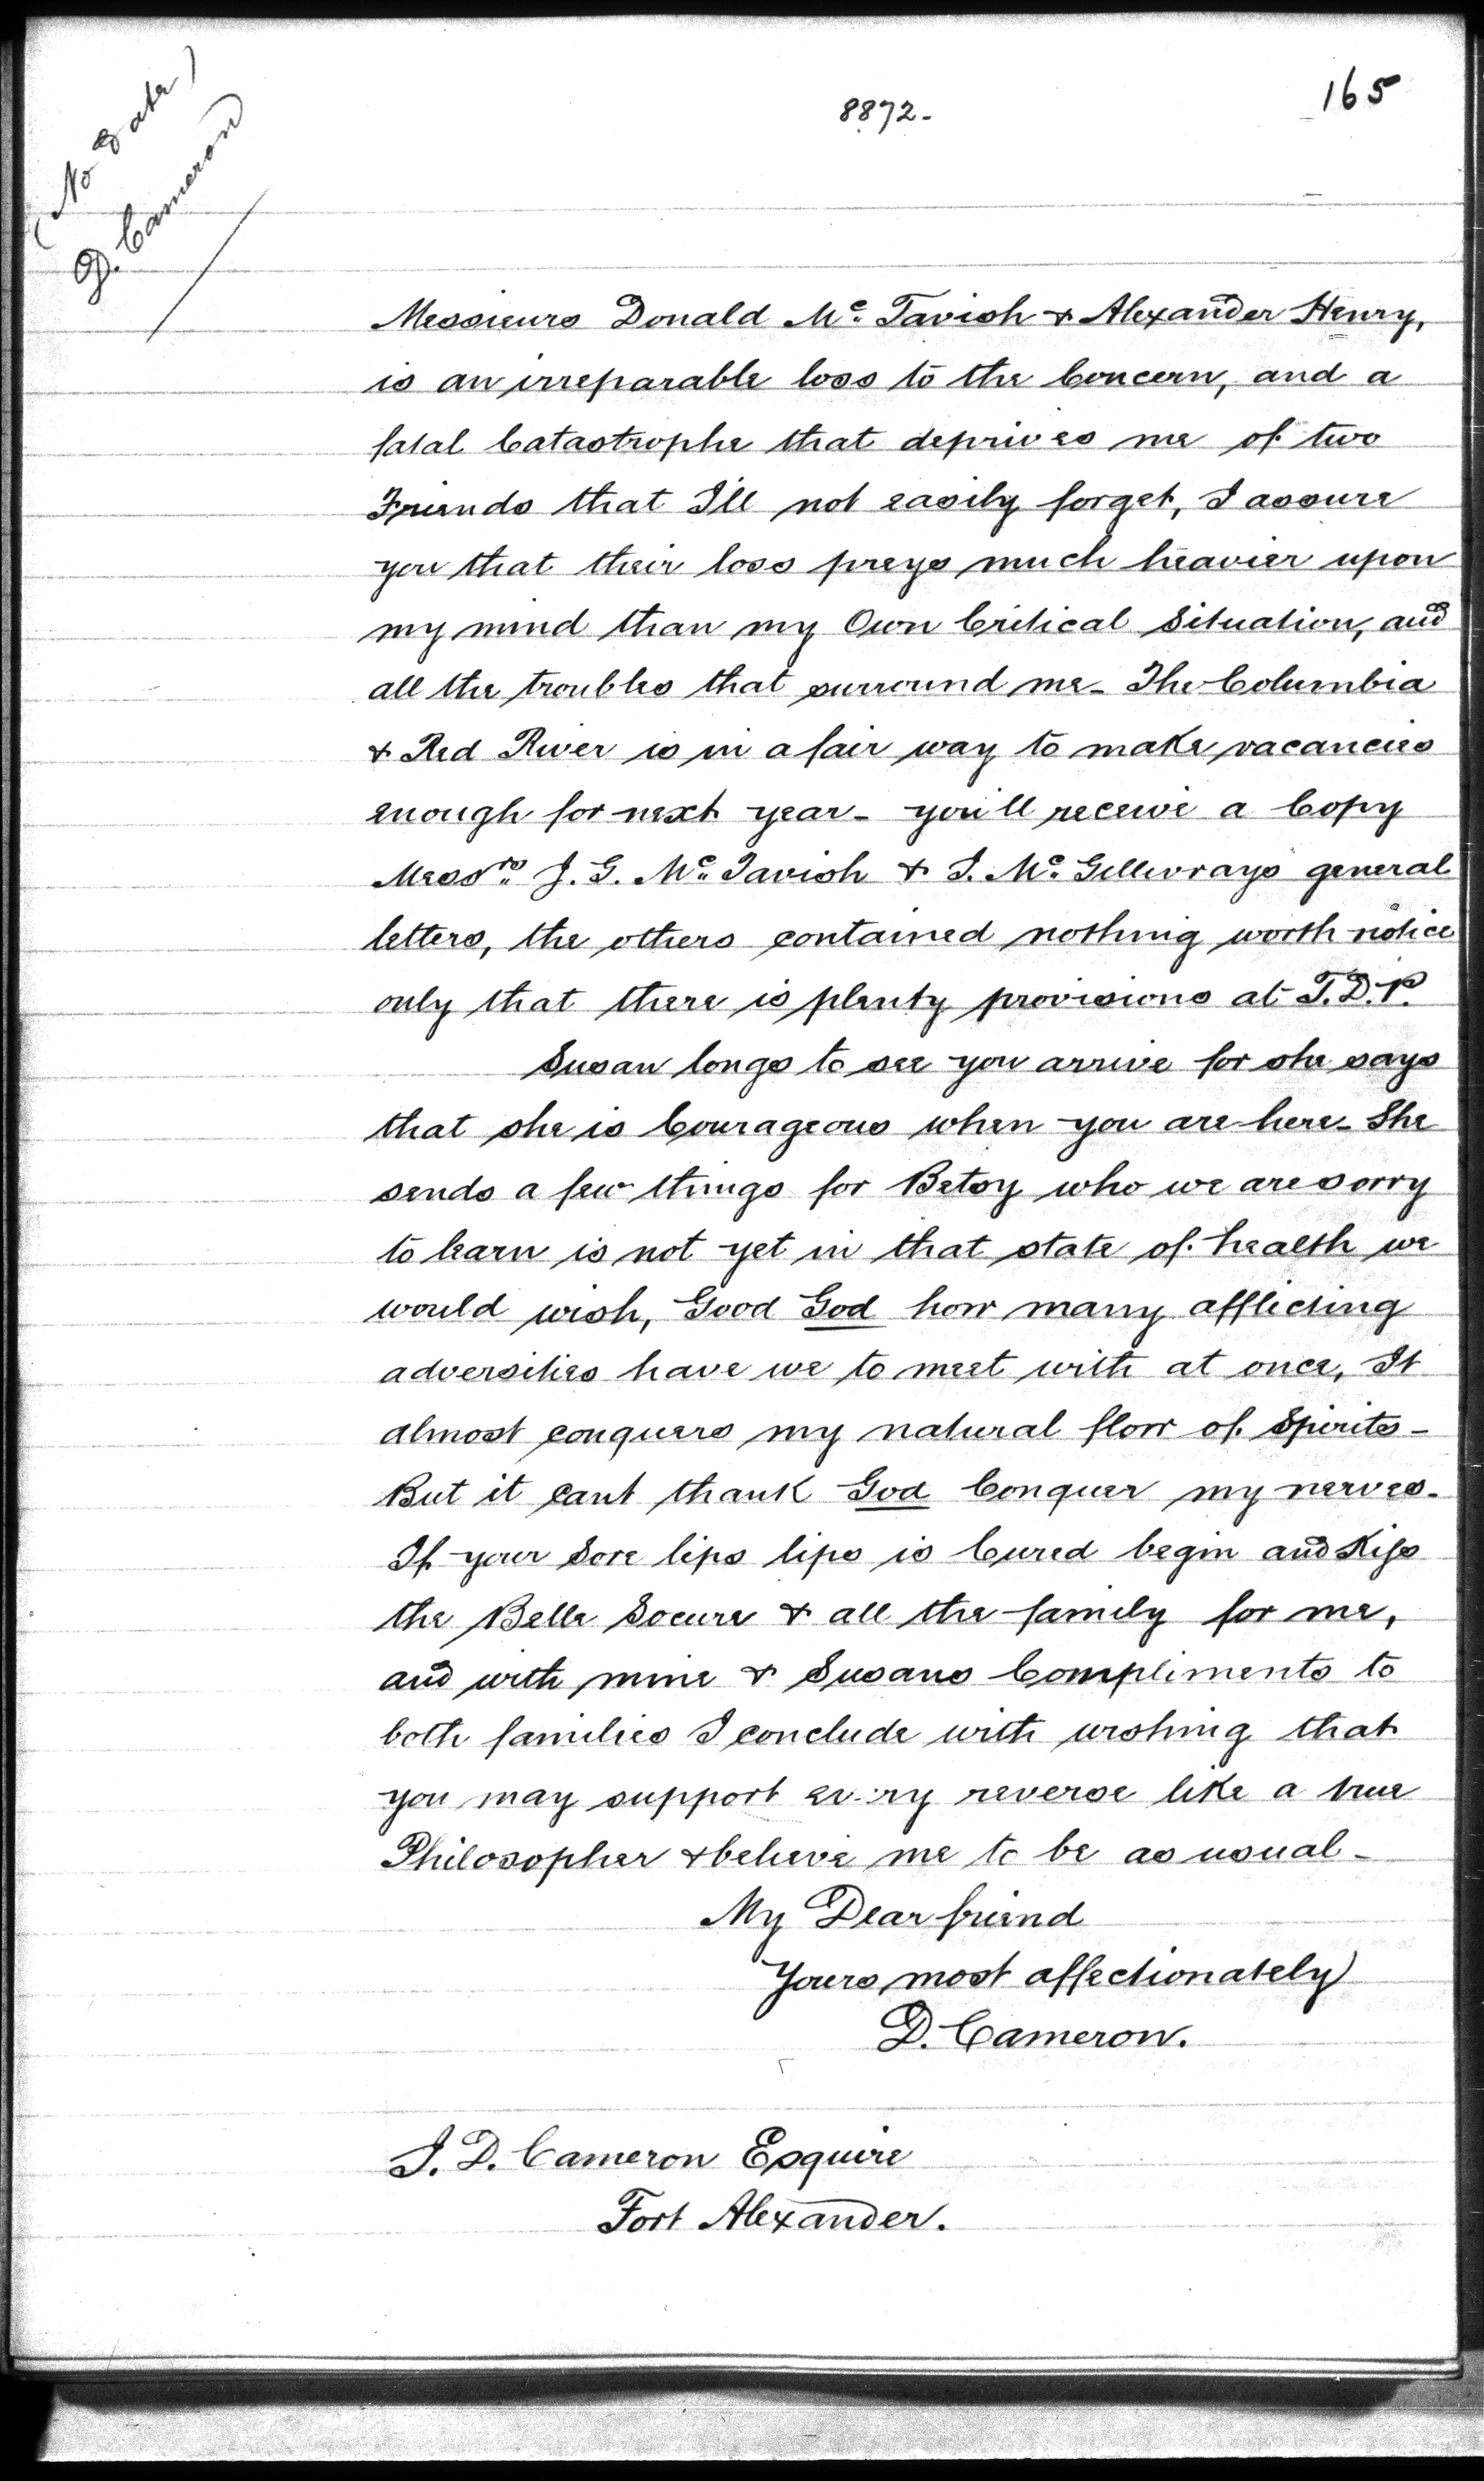 165
8872-
(No Date)
D. Cameron
Messieurs Donald Mc. Tavish & Alexander Henry,
is an irreparable loss to the Concern, and a
fatal Catastrophe that deprives me of two
Friends that I'll not easily forget, I assure
you that their loss preys much heavier upon
my mind than my Own Critical Situation, and
all the troubles that surround me - The Columbia
& Red River is in a fair way to make vacancies
enough for next year - you'll receive a Copy
Messrs. J. G. Mc. Tavish & J. Mc. Gillivrays general
letters, the others contained nothing worth notice
only that there is plenty provisions at T. D. P.
Susan longs to see you arrive for she says
that she is Courageous when you are here - She
sends a few things for Betsy who we are sorry
to learn is not yet in that state of health we
would wish, Good God how many afflicting
adversities have we to meet with at once, It
almost conquers my natural flow of Spirits -
But it cant thank God Conquer my nerves.
If your Sore lips lips is Cured begin and Kiss
the Belle Socure & all the family for me,
and with mine & Susans Compliments to
both families I conclude with wishing that
you may support every reverse like a true
Philosopher & believe me to be as usual -
My Dear friend
Yours most affectionately
D. Cameron.
J. D. Cameron Esquire
Fort Alexander.